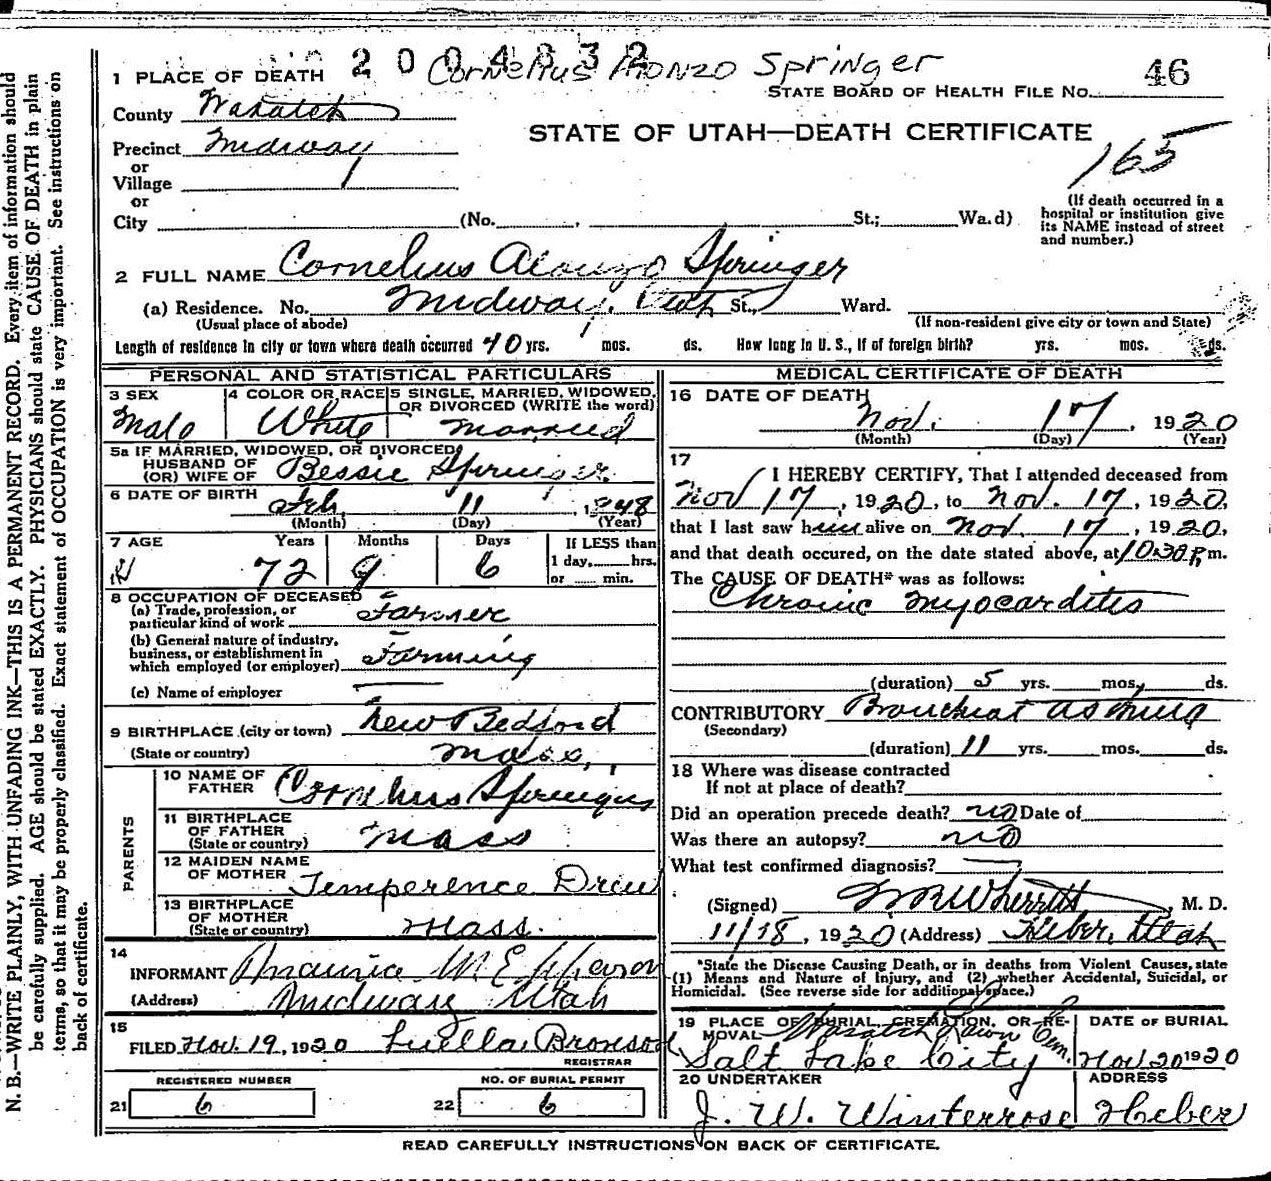 2004832 Cornelius Alonzo Springer 46
1 PLACE OF DEATH
STATE BOARD OF HEALTH FILE No.
County Wasatch
STATE OF UTAH—DEATH CERTIFICATE
165
Precinct Midway
or
Village
or
City (No. , St.; Wa.d)
(If death occurred in a
hospital or institution give
its NAME instead of street
and number.)
2 FULL NAME Cornelius Alonzo Springer
(a) Residence. No. Midway, Utah St., Ward.
(Usual place of abode) (If non-resident give city or town and State)
Length of residence in city or town where death occurred 40 yrs. mos. ds. How long in U. S., if of foreign birth? yrs. mos. ds.
PERSONAL AND STATISTICAL PARTICULARS
3 SEX Male
4 COLOR OR RACE White
5 SINGLE, MARRIED, WIDOWED,
OR DIVORCED (WRITE the word)
Married
5a IF MARRIED, WIDOWED, OR DIVORCED
HUSBAND OF
(OR) WIFE OF Bessie Springer
6 DATE OF BIRTH Feb. 11, 1848
(Month) (Day) (Year)
7 AGE Years Months Days If LESS than
1 day, hrs.
or min.
72 9 6
8 OCCUPATION OF DECEASED
(a) Trade, profession, or
particular kind of work Farmer
(b) General nature of industry,
business, or establishment in
which employed (or employer) Farming
(c) Name of employer
9 BIRTHPLACE (city or town) New Bedford
(State or country) Mass,
PARENTS
10 NAME OF
FATHER Cornelius Springer
11 BIRTHPLACE
OF FATHER
(State or country) Mass
12 MAIDEN NAME
OF MOTHER Temperence Drew
13 BIRTHPLACE
OF MOTHER
(State or country) Mass.
14
INFORMANT
(Address) Midway Utah
15
FILED Nov. 19, 1920 Luella Bronson
REGISTRAR
REGISTERED NUMBER NO. OF BURIAL PERMIT
21 6 22 6
MEDICAL CERTIFICATE OF DEATH
16 DATE OF DEATH
Nov. 17, 1920
(Month) (Day) (Year)
17
I HEREBY CERTIFY, That I attended deceased from
Nov 17, 1920, to Nov. 17, 1920,
that I last saw him alive on Nov. 17, 1920,
and that death occured, on the date stated above, at 10:30 P.m.
The CAUSE OF DEATH* was as follows:
Chronic myocarditis
(duration) 5 yrs. mos. ds.
CONTRIBUTORY Bronchial asthma
(Secondary)
(duration) 11 yrs. mos. ds.
18 Where was disease contracted
If not at place of death?
Did an operation precede death? no Date of
Was there an autopsy? no
What test confirmed diagnosis?
(Signed) , M. D.
11/18, 1920 (Address) Heber, Utah
*State the Disease Causing Death, or in deaths from Violent Causes, state
(1) Means and Nature of Injury, and (2) whether Accidental, Suicidal, or
Homicidal. (See reverse side for additional space.)
19 PLACE OF BURIAL, CREMATION, OR RE-
MOVAL Wasatch Lawn Cem.
Salt Lake City
DATE OF BURIAL
Nov 20 1920
20 UNDERTAKER
J. W. Winterrose
ADDRESS
Heber
READ CAREFULLY INSTRUCTIONS ON BACK OF CERTIFICATE.
N. B.—WRITE PLAINLY, WITH UNFADING INK—THIS IS A PERMANENT RECORD. Every item of information should
be carefully supplied. AGE should be stated EXACTLY. PHYSICIANS should state CAUSE OF DEATH in plain
terms, so that it may be properly classified. Exact statement of OCCUPATION is very important. See instructions on
back of certificate.